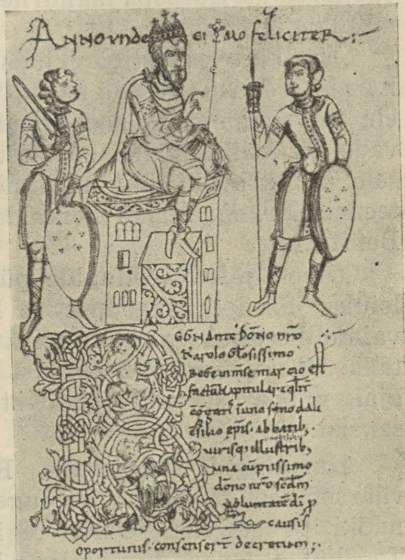 ANNO VNDE ci mo feliciter:
GNANTE DONO NRO
Karolo Glosissimo
Rege in mse marcio
factu capitulare qlit
abbatib,
virisq illustrib,
una cu piissimo
dono nro scdm
voluntate di p
causis
oportunis. consenser decretum: